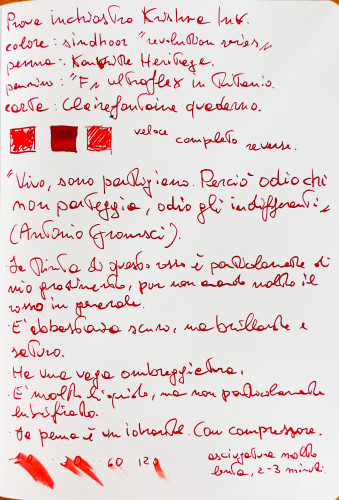 Prova inchiostro Krishna Ink.
colore: sindhoor "revolution series"
penna: Kanwrite Heritage.
pennino: "F" ultraflex in titanio.
carta: Clairefontaine quaderno.
veloce completo reverse.
"Vivo, sono partigiano. Perciò odio chi
non parteggia, odio gli indifferenti"
(Antonio Gramsci).
La tinta di questo rosso è particolarmente di
mio gradimento, pur non amando molto il
rosso in generale.
E' abbastanza scuro, ma brillante e
saturo.
Ha una vaga ombreggiatura.
E' molto liquido, ma non particolarmente
lubrificato.
La penna è un ibrido. Con compressore.
30 60 120
asciugatura molto
lenta, 2-3 minuti.